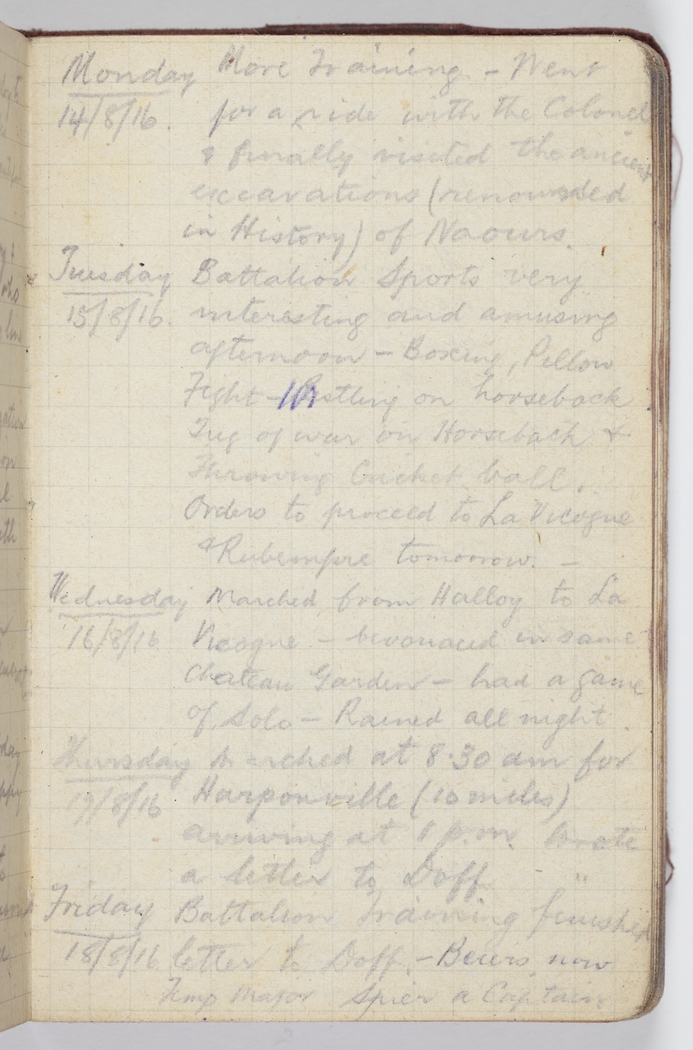 Monday More Training - Went
14/8/16. for a ride with the Colonel
& finally visited the ancient
excavations (renowned
in History) of Naours.
Tuesday Battalion Sports very
15/8/16. interesting and amusing
afternoon - Boxing, Pillow
Fight - Wrstling on horseback
Tug of war on Horseback &
Throwing Cricket ball.
Orders to proceed to La Vicogne
& Rubempre tomorrow. -
Wednesday Marched from Halloy to La
16/8/16 Vicogne - bivouaced in same
Chateau Garden - had a game
of Solo - Rained all night.
Thursday Marched at 8.30 am for
17/8/16 Harponville (10 miles)
arriving at 1 p.m. Wrote
a letter to Doff
Friday Battalion Training finished
18/8/16 letter to Doff. - now
Temp Major Spier a Captain